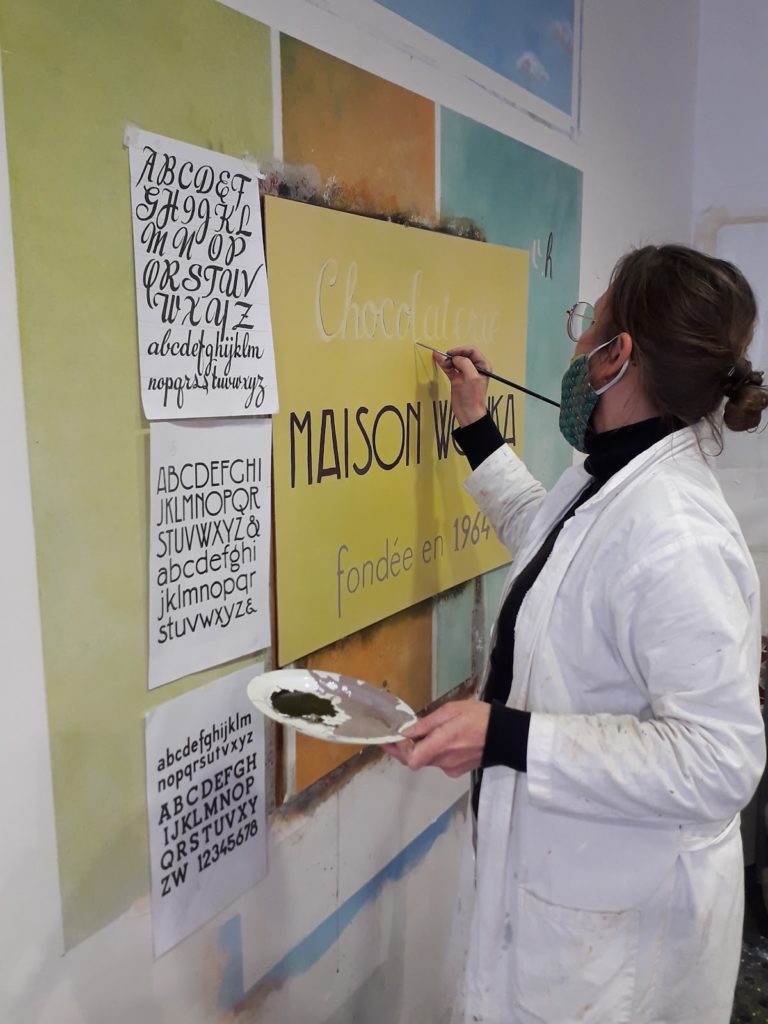 ABCDEF
GHIJKL
MNOP
QRSTUV
WXYZ
abcdefghijklm
nopqrstuvwxyz
ABCDEFGHI
JKLMNOPQR
STUVWXYZ&
abcdefghi
jklmnopqr
stuvwxyz&
abcdefghijklm
nopqrstuvwxyz
ABCDEFGH
IJKLMNOP
QRSTUVXY
ZW 12345678
Chocolaterie
MAISON WONKA
fondée en 1964